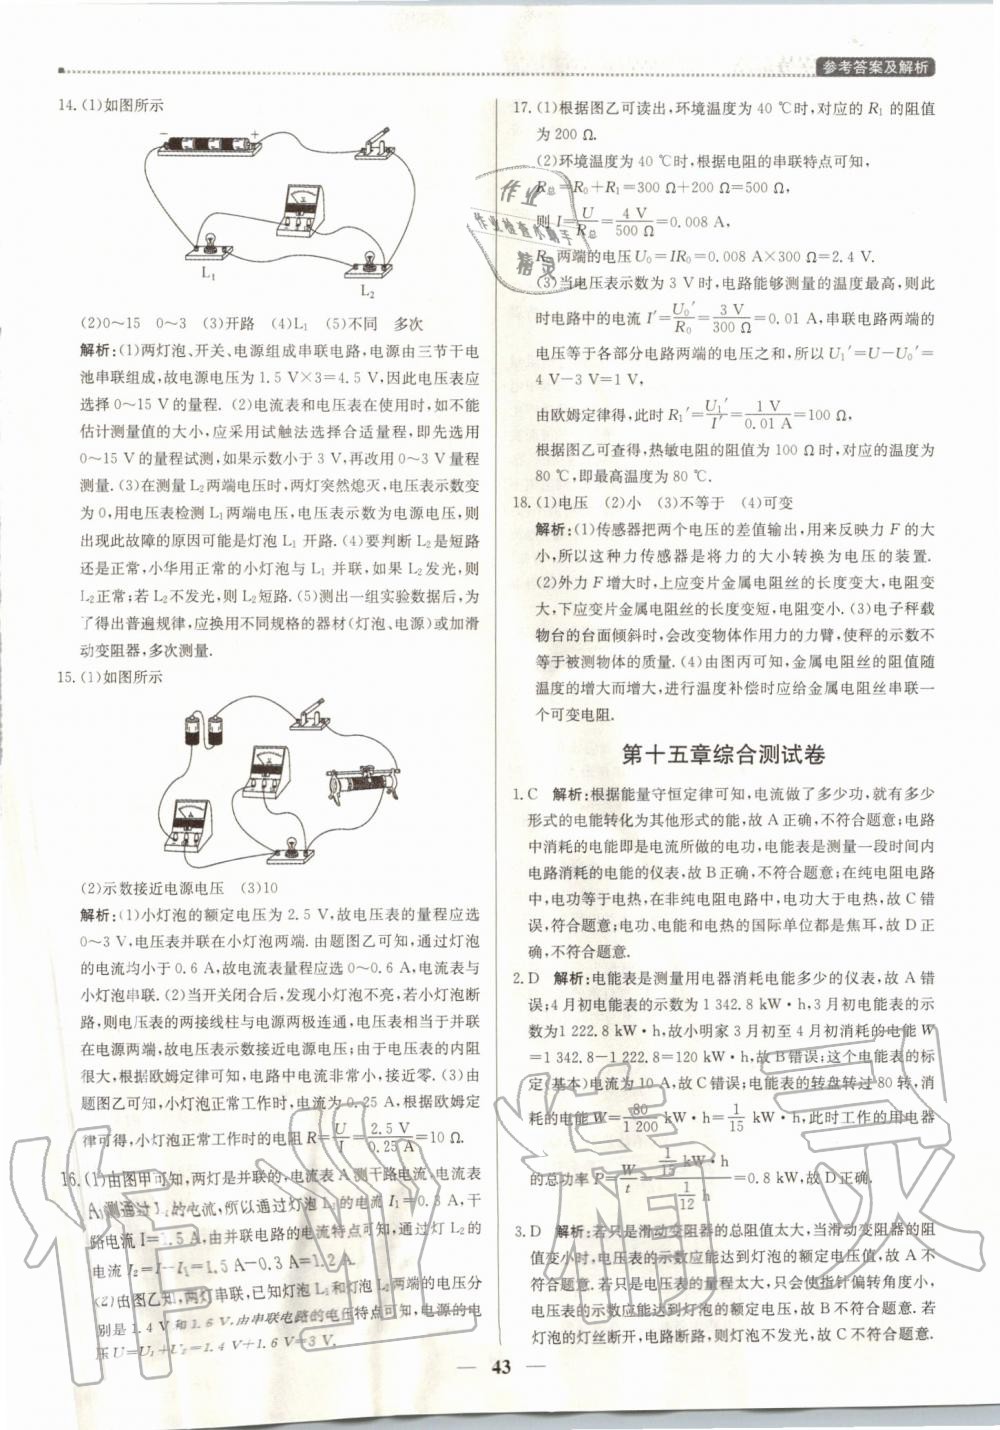 参考答案及解析
14.(1)如图所示
− +
L₁
L₂
(2)0～15 0～3 (3)开路 (4)L₁ (5)不同 多次
解析:(1)两灯泡、开关、电源组成串联电路,电源由三节干电
池串联组成,故电源电压为 1.5 V×3=4.5 V,因此电压表应
选择 0～15 V 的量程. (2)电流表和电压表在使用时,如不能
估计测量值的大小,应采用试触法选择合适量程,即先选用
0～15 V 的量程试测,如果示数小于 3 V,再改用 0～3 V 量程
测量. (3)在测量 L₂ 两端电压时,两灯突然熄灭,电压表示数变
为 0,用电压表检测 L₁ 两端电压,电压表示数为电源电压,则
出现此故障的原因可能是灯泡 L₁ 开路. (4)要判断 L₂ 是短路
还是正常,小华用正常的小灯泡与 L₁ 并联,如果 L₂ 发光,则
L₂ 正常;若 L₂ 不发光,则 L₂ 短路. (5)测出一组实验数据后,为
了得出普遍规律,应换用不同规格的器材(灯泡、电源)或加滑
动变阻器,多次测量.
15.(1)如图所示
(2)示数接近电源电压 (3)10
解析:(1)小灯泡的额定电压为 2.5 V,故电压表的量程应选
0～3 V,电压表并联在小灯泡两端. 由题图乙可知,通过灯泡
的电流均小于 0.6 A,故电流表量程应选 0～0.6 A,电流表与
小灯泡串联. (2)当开关闭合后,发现小灯泡不亮,若小灯泡断
路,则电压表的两接线柱与电源两极连通,电压表相当于并联
在电源两端,故电压表示数接近电源电压;由于电压表的内阻
很大,根据欧姆定律可知,电路中电流非常小,接近零. (3)由
题图乙可知,小灯泡正常工作时,电流为 0.25 A,根据欧姆定
律可得,小灯泡正常工作时的电阻 R=U/I=2.5 V/0.25 A=10 Ω.
16.(1)由图甲可知,两灯是并联的,电流表 A 测干路电流,电流表
A₁ 测通过 L₁ 的电流,所以通过灯泡 L₁ 的电流 I₁=0.3 A,干
路电流 I=1.5 A,由并联电路的电流特点可知,通过灯 L₂ 的
电流 I₂=I−I₁=1.5 A−0.3 A=1.2 A.
(2)由图乙知,两灯串联,已知灯泡 L₁ 和灯泡 L₂ 两端的电压分
别是 1.4 V 和 1.6 V,由串联电路的电压特点可知,电源的电
压 U=U₁+U₂=1.4 V+1.6 V=3 V.
17.(1)根据图乙可读出,环境温度为 40 ℃时,对应的 R₁ 的阻值
为 200 Ω.
(2)环境温度为 40 ℃时,根据电阻的串联特点可知,
R总=R₀+R₁=300 Ω+200 Ω=500 Ω,
则 I=U/R总=4 V/500 Ω=0.008 A,
R₀ 两端的电压 U₀=IR₀=0.008 A×300 Ω=2.4 V.
(3)当电压表示数为 3 V 时,电路能够测量的温度最高,则此
时电路中的电流 I′=U₀′/R₀=3 V/300 Ω=0.01 A,串联电路两端的
电压等于各部分电路两端的电压之和,所以 U₁′=U−U₀′=
4 V−3 V=1 V,
由欧姆定律得,此时 R₁′=U₁′/I′=1 V/0.01 A=100 Ω,
根据图乙可查得,热敏电阻的阻值为 100 Ω 时,对应的温度为
80 ℃,即最高温度为 80 ℃.
18.(1)电压 (2)小 (3)不等于 (4)可变
解析:(1)传感器把两个电压的差值输出,用来反映力 F 的大
小,所以这种力传感器是将力的大小转换为电压的装置.
(2)外力 F 增大时,上应变片金属电阻丝的长度变大,电阻变
大,下应变片金属电阻丝的长度变短,电阻变小. (3)电子秤载
物台的台面倾斜时,会改变物体作用力的力臂,使秤的示数不
等于被测物体的质量. (4)由图丙可知,金属电阻丝的阻值随
温度的增大而增大,进行温度补偿时应给金属电阻丝串联一
个可变电阻.
第十五章综合测试卷
1. C 解析:根据能量守恒定律可知,电流做了多少功,就有多少
形式的电能转化为其他形式的能,故 A 正确,不符合题意;电路
中消耗的电能即是电流所做的电功,电能表是测量一段时间内
电路消耗的电能的仪表,故 B 正确,不符合题意;在纯电阻电路
中,电功等于电热,在非纯电阻电路中,电功大于电热,故 C 错
误,符合题意;电功、电能和电热的国际单位都是焦耳,故 D 正
确,不符合题意.
2. D 解析:电能表是测量用电器消耗电能多少的仪表,故 A 错
误;4 月初电能表的示数为 1 342.8 kW·h,3 月初电能表的示
数为 1 222.8 kW·h,故小明家 3 月初至 4 月初消耗的电能 W
=1 342.8−1 222.8=120 kW·h,故 B 错误;这个电能表的标
定(基本)电流为 10 A,故 C 错误;电能表的转盘转过 80 转,消
耗的电能 W=80/1 200 kW·h=1/15 kW·h,此时工作的用电器
的总功率 P=W/t=(1/15 kW·h)/(1/12 h)=0.8 kW,故 D 正确.
3. D 解析:若只是滑动变阻器的总阻值太大,当滑动变阻器的阻
值变小时,电压表的示数应能达到灯泡的额定电压值,故 A 不
符合题意. 若只是电压表的量程太大,只会使指针偏转角度小,
电压表的示数应能达到灯泡的额定电压,故 B 不符合题意. 若
灯泡的灯丝断开,电路断路,则灯泡不发光,故 C 不符合题意.
43
作业
作业检查小助手
精灵
作业精灵